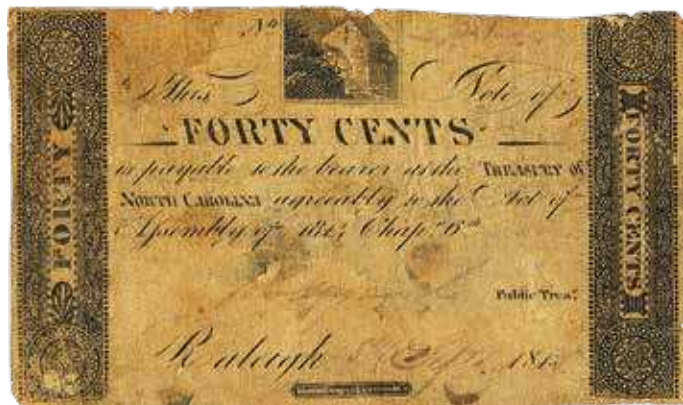 No
This Note of
FORTY CENTS
is payable to the bearer at the TREASURY OF
NORTH CAROLINA agreeably to the Act of
Assembly of Chap.
Public Trea.r
Raleigh
FORTY
FORTY CENTS